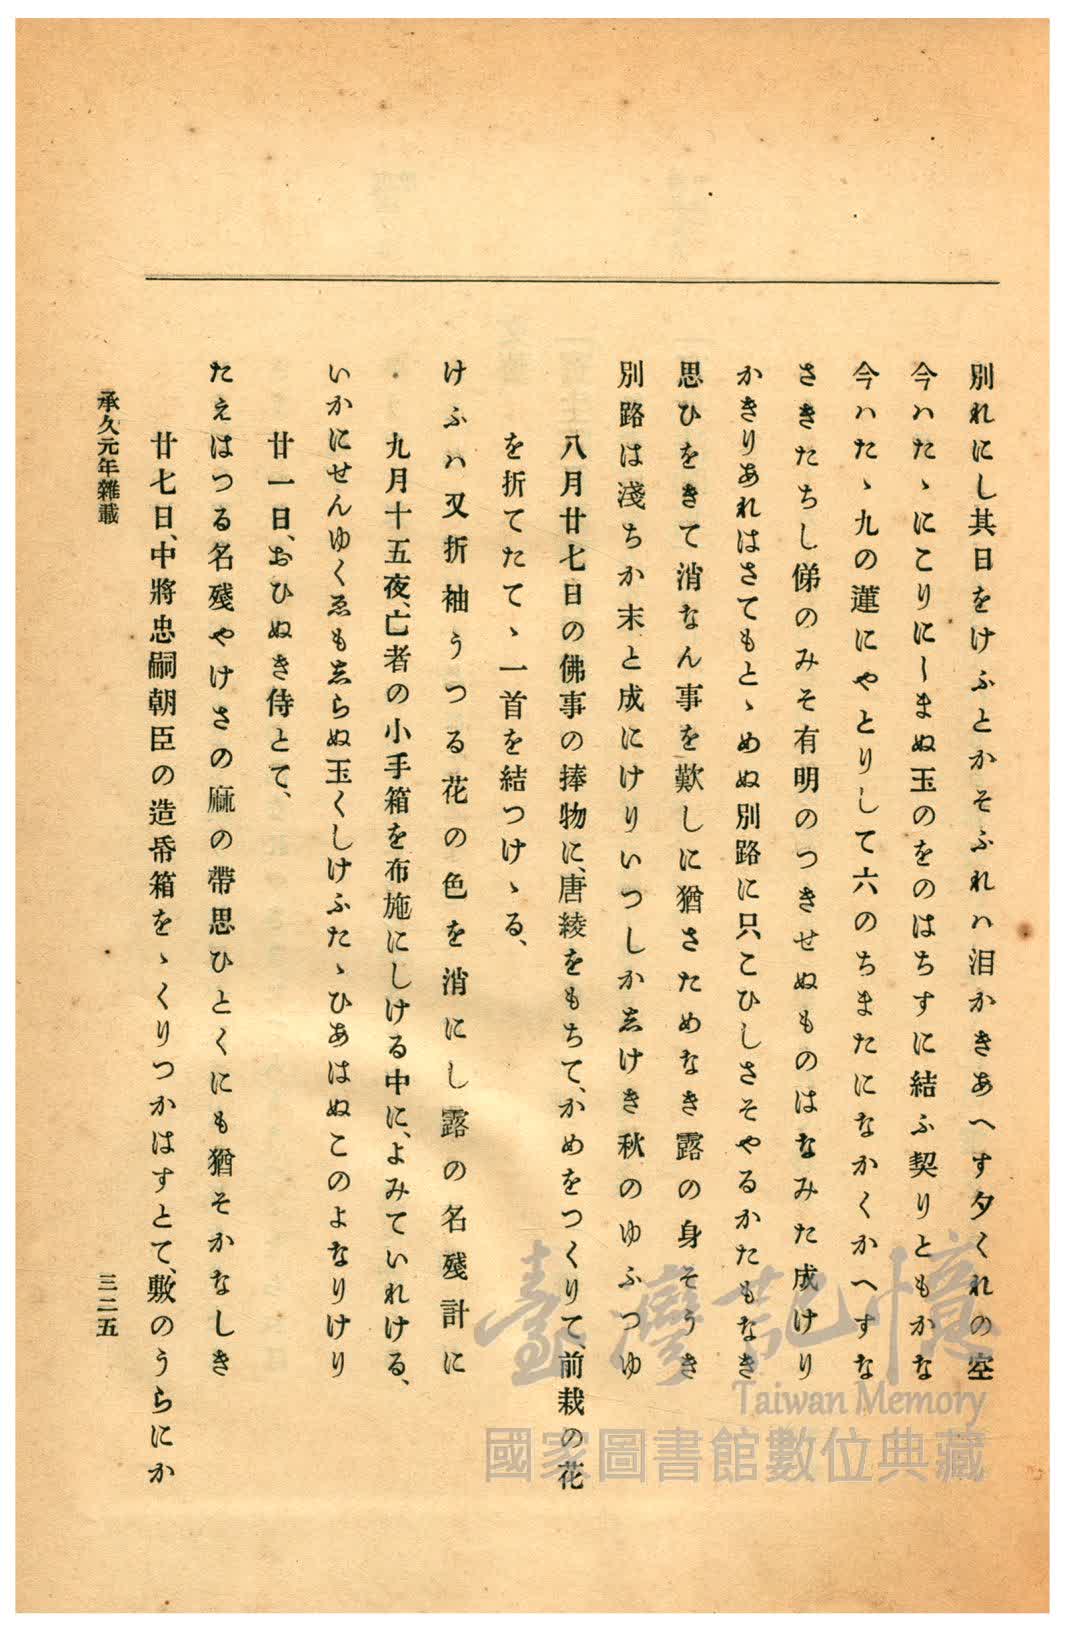 別れにし其日をけふとかそふれハ泪かきあへす夕くれの空
今ハたゝにこりに〳まぬ玉のをのはちすに結ふ契りともかな
今ハたゝ九の蓮にやとりして六のちまたになかくかへすな
さきたちし俤のみそ有明のつきせぬものはなみた成けり
かきりあれはさてもとゝめぬ別路に只こひしさそやるかたもなき
思ひをきて消なん事を歎しに猶さためなき露の身そうき
別路は淺ちか末と成にけりいつしか志けき秋のゆふつゆ
八月廿七日の佛事の捧物に、唐綾をもちて、かめをつくりて、前栽の花
を折てたてゝ一首を結つけゝる、
けふハ又折袖うつる花の色を消にし露の名殘計に
九月十五夜、亡者の小手箱を布施にしける中に、よみていれける、
いかにせんゆくゑも志らぬ玉くしけふたゝひあはぬこのよなりけり
廿一日、おひぬき侍とて、
たえはつる名殘やけさの麻の帶思ひとくにも猶そかなしき
廿七日、中將忠嗣朝臣の造帋箱をゝくりつかはすとて、敷のうらにか
承久元年雜載
三二五
臺灣記憶
Taiwan Memory
國家圖書館數位典藏